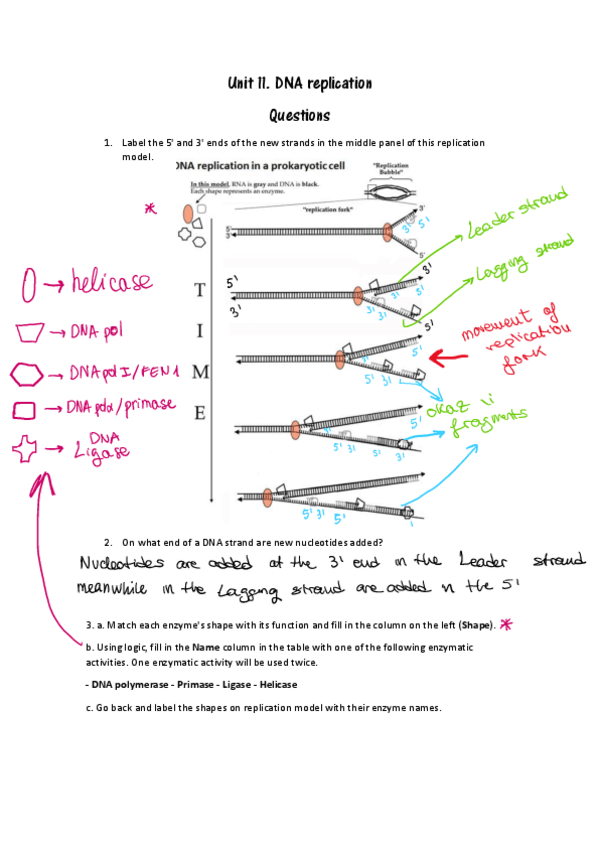 Unit 11. DNA replication
Questions
1. Label the 5' and 3' ends of the new strands in the middle panel of this replication
model.
DNA replication in a prokaryotic cell
"Replication
Bubble"
In this model, RNA is gray and DNA is black.
Each shape represents an enzyme.
*
"replication fork"
3'
3' 5'
5'
3'
5'
Leader strand
Lagging strand
→ helicase
T
5'
3'
3'
5'
3'
5'
3' 3'
5'
→ DNA pol
I
movement of
replication
fork
→ DNA pol I/FEN1
M
5'
5' 3'
→ DNA pol α/primase
E
okaz ii
fragments
5'
5' 3' 5' 3'
→ DNA
Ligase
5' 3' 5'
2. On what end of a DNA strand are new nucleotides added?
Nucleotides are added at the 3' end in the Leader strand
meanwhile in the Lagging strand are added n the 5'
3. a. Match each enzyme's shape with its function and fill in the column on the left (Shape). *
b. Using logic, fill in the Name column in the table with one of the following enzymatic
activities. One enzymatic activity will be used twice.
- DNA polymerase - Primase - Ligase - Helicase
c. Go back and label the shapes on replication model with their enzyme names.